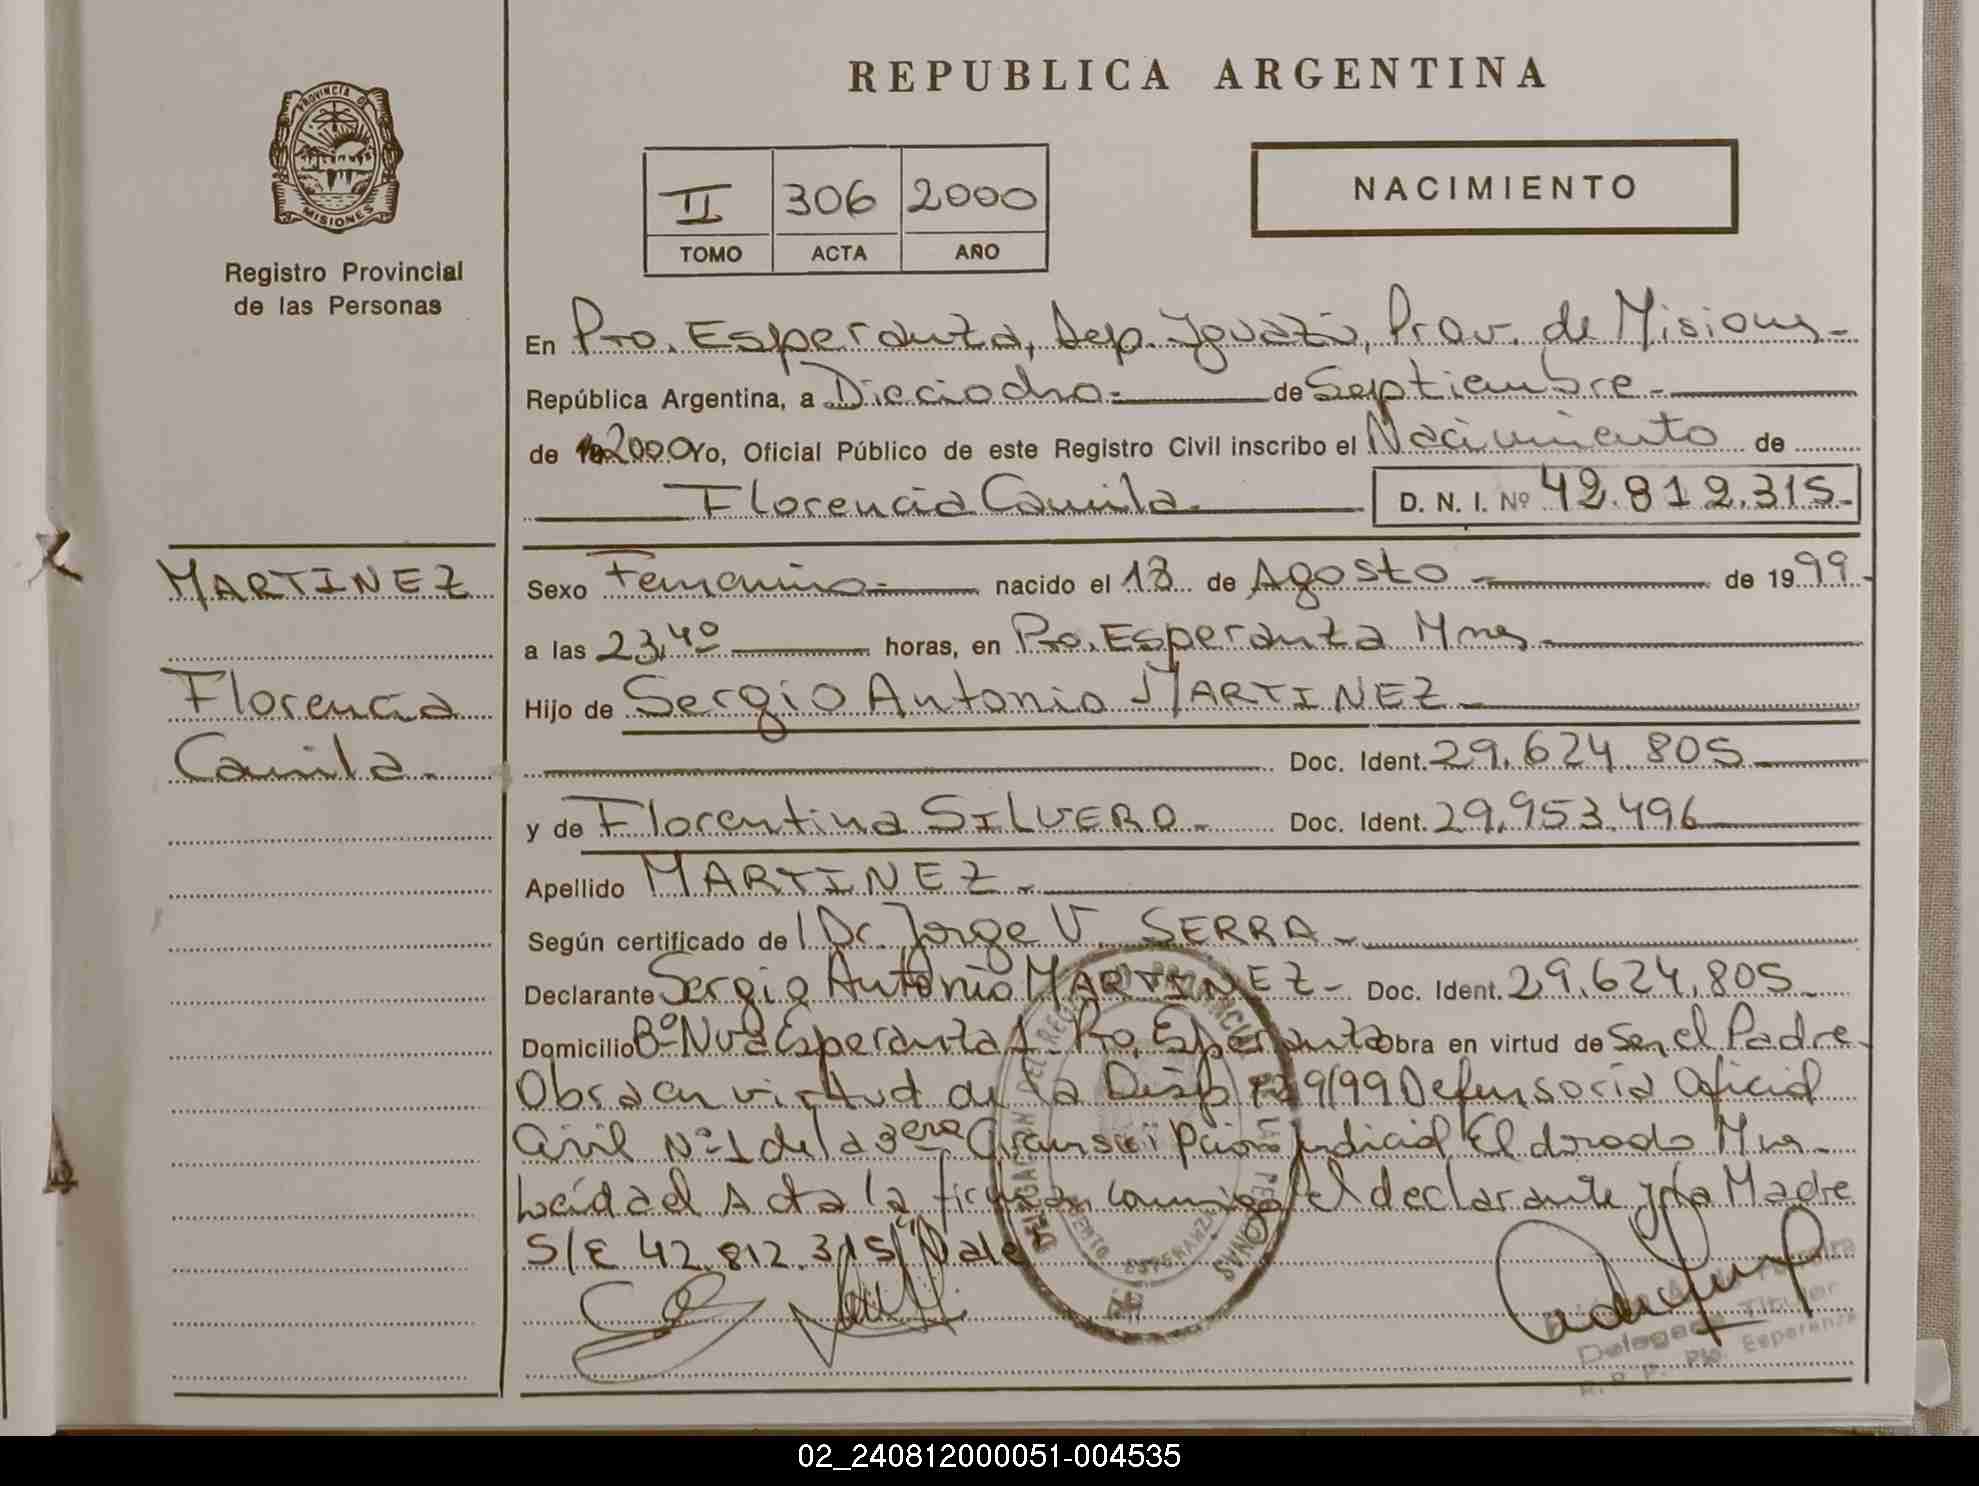 REPUBLICA ARGENTINA
PROVINCIA DE
MISIONES
Registro Provincial
de las Personas
II 306 2000
TOMO ACTA AÑO
NACIMIENTO
En Pto. Esperanza, Dep. Iguazú, Prov. de Misiones-
República Argentina, a Dieciocho- de Septiembre-
de 2000 Yo, Oficial Público de este Registro Civil inscribo el Nacimiento de
Florencia Camila- D. N. I. Nº 42.812.315-
MARTINEZ
Florencia
Camila-
Sexo Femenino- nacido el 18 de Agosto - de 1999-
a las 23,40 horas, en Pto. Esperanza Mnes-
Hijo de Sergio Antonio MARTINEZ-
Doc. Ident. 29.624.805
y de Florentina SILVERO- Doc. Ident. 29.953.496
Apellido MARTINEZ-
Según certificado de Dr. Jorge V. SERRA-
Declarante Sergio Antonio MARTINEZ- Doc. Ident. 29.624.805-
Domicilio Bº Nva Esperanza - Pto. Esperanza Obra en virtud de Ser el Padre-
Obra en virtud de la Disp 729/99 Defensoría Oficial
Civil Nº 1 de la 3era Circunscripción Judicial Eldorado Mnes-
Leída el Acta la firman conmigo el declarante y la Madre
S/E 42.812.315/"Vale
Delegado Titular
R. P. P. Pto. Esperanza
02_240812000051-004535